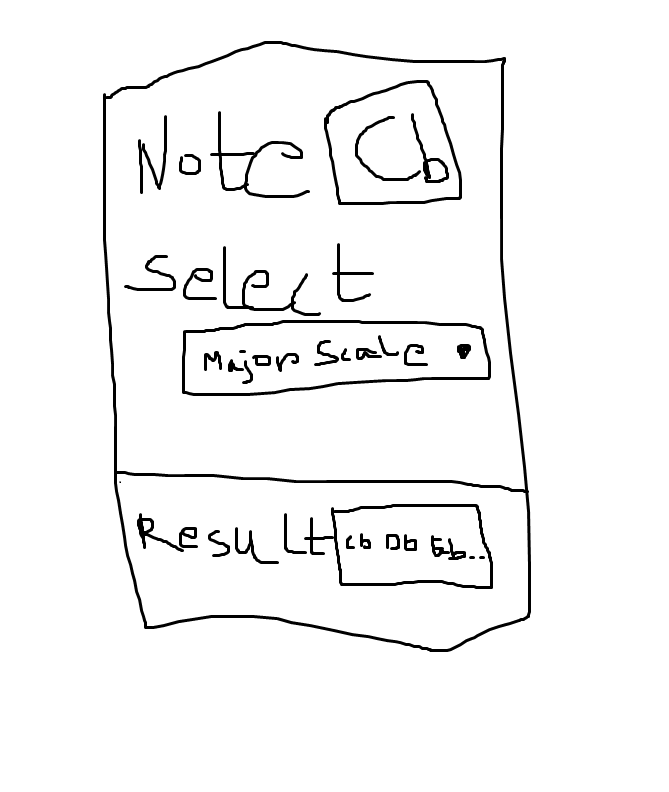 Note Cb
Select
Major Scale
Result Cb Db Eb..